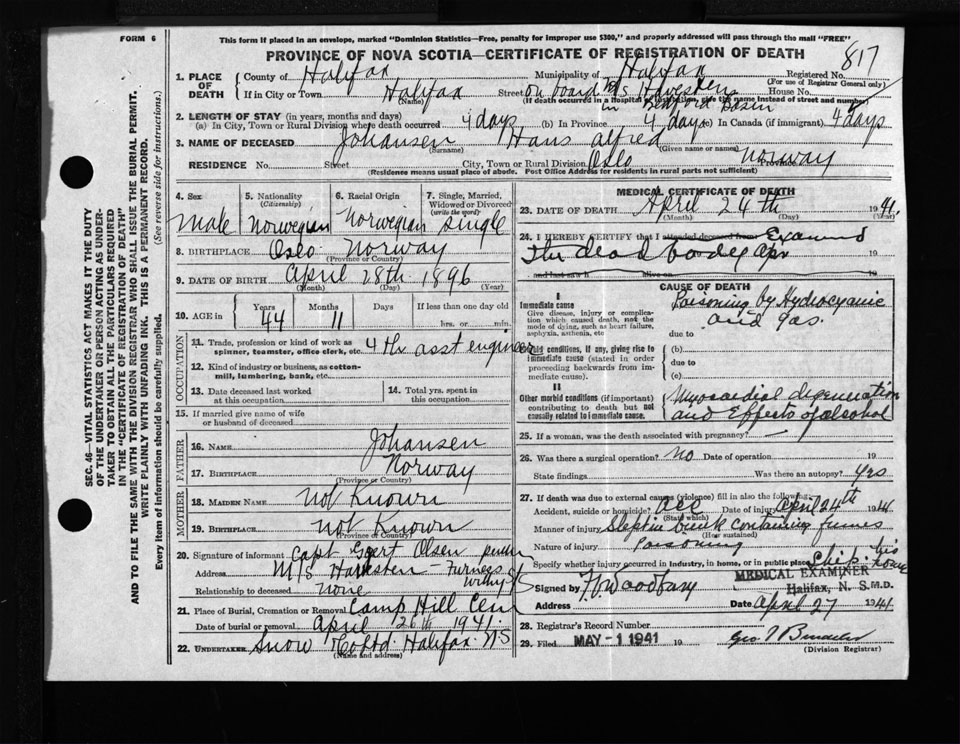 FORM 6
This form if placed in an envelope, marked "Dominion Statistics—Free, penalty for improper use $300," and properly addressed will pass through the mail "FREE"
PROVINCE OF NOVA SCOTIA—CERTIFICATE OF REGISTRATION OF DEATH
817
1. PLACE OF DEATH
County of Halifax Municipality of Halifax Registered No.
(For use of Registrar General only)
If in City or Town Halifax Street on board M/S Havesten House No.
(Name) (If death occurred in a Hospital or Institution, give the name instead of street and number)
in Bedford Basin
2. LENGTH OF STAY (in years, months and days)
(a) In City, Town or Rural Division where death occurred 4 days (b) In Province 4 days (c) In Canada (if immigrant) 4 days
3. NAME OF DECEASED Johansen Hans Alfred
(Surname) (Given name or names)
RESIDENCE No. Street City, Town or Rural Division Oslo Province Norway
(Residence means usual place of abode. Post Office Address for residents in rural parts not sufficient)
4. Sex Male
5. Nationality (Citizenship) Norwegian
6. Racial Origin Norwegian
7. Single, Married, Widowed or Divorced (write the word) Single
8. BIRTHPLACE Oslo Norway
(Province or Country)
9. DATE OF BIRTH April 28th 1896
(Month) (Day) (Year)
10. AGE in Years 44 Months 11 Days If less than one day old
hrs. or min.
OCCUPATION
11. Trade, profession or kind of work as spinner, teamster, office clerk, etc. 4th asst engineer
12. Kind of industry or business, as cotton-mill, lumbering, bank, etc.
13. Date deceased last worked at this occupation
14. Total yrs. spent in this occupation
15. If married give name of wife or husband of deceased
FATHER
16. NAME Johansen
17. BIRTHPLACE Norway
(Province or Country)
MOTHER
18. MAIDEN NAME Not Known
19. BIRTHPLACE Not Known
(Province or Country)
20. Signature of informant Capt Olsen
Address M/S Havesten - Furness Withy
Relationship to deceased none
21. Place of Burial, Cremation or Removal Camp Hill Cem
Date of burial or removal April 26th 1941.
22. UNDERTAKER Snow Co Ltd. Halifax N.S
(Name and address)
MEDICAL CERTIFICATE OF DEATH
23. DATE OF DEATH April 24th 1941.
(Month) (Day) (Year)
24. I HEREBY CERTIFY that I attended deceased from Examined
The dead body Apr 19
and last saw h alive on 19
CAUSE OF DEATH
I
Immediate cause
Give disease, injury or complication which caused death, not the mode of dying, such as heart failure, asphyxia, asthenia, etc
Poisoning by Hydrocyanic acid gas.
due to
Morbid conditions, if any, giving rise to immediate cause (stated in order proceeding backwards from immediate cause).
(b)
due to
(c)
II
Other morbid conditions (if important) contributing to death but not causally related to immediate cause.
Myocardial degeneration and Effects of alcohol
25. If a woman, was the death associated with pregnancy?
26. Was there a surgical operation? No Date of operation 19
State findings Was there an autopsy? Yes
27. If death was due to external causes (violence) fill in also the following:
Accident, suicide or homicide? Acc Date of injury April 24th 1941
(State which)
Manner of injury Slept in bunk containing fumes
(How sustained)
Nature of injury Poisoning
Specify whether injury occurred in industry, in home, or in public place Ship. his
Signed by M.D.
MEDICAL EXAMINER
Halifax, N. S.
Address Date April 27 1941.
28. Registrar's Record Number
29. Filed MAY - 1 1941 19
(Division Registrar)
SEC. 46—VITAL STATISTICS ACT MAKES IT THE DUTY
OF THE UNDERTAKER OR PERSON ACTING AS UNDER-
TAKER TO OBTAIN ALL THE PARTICULARS REQUIRED
IN THE "CERTIFICATE OF REGISTRATION OF DEATH"
AND TO FILE THE SAME WITH THE DIVISION REGISTRAR WHO SHALL ISSUE THE BURIAL PERMIT.
WRITE PLAINLY WITH UNFADING INK. THIS IS A PERMANENT RECORD.
Every item of information should be carefully supplied. (See reverse side for instructions.)